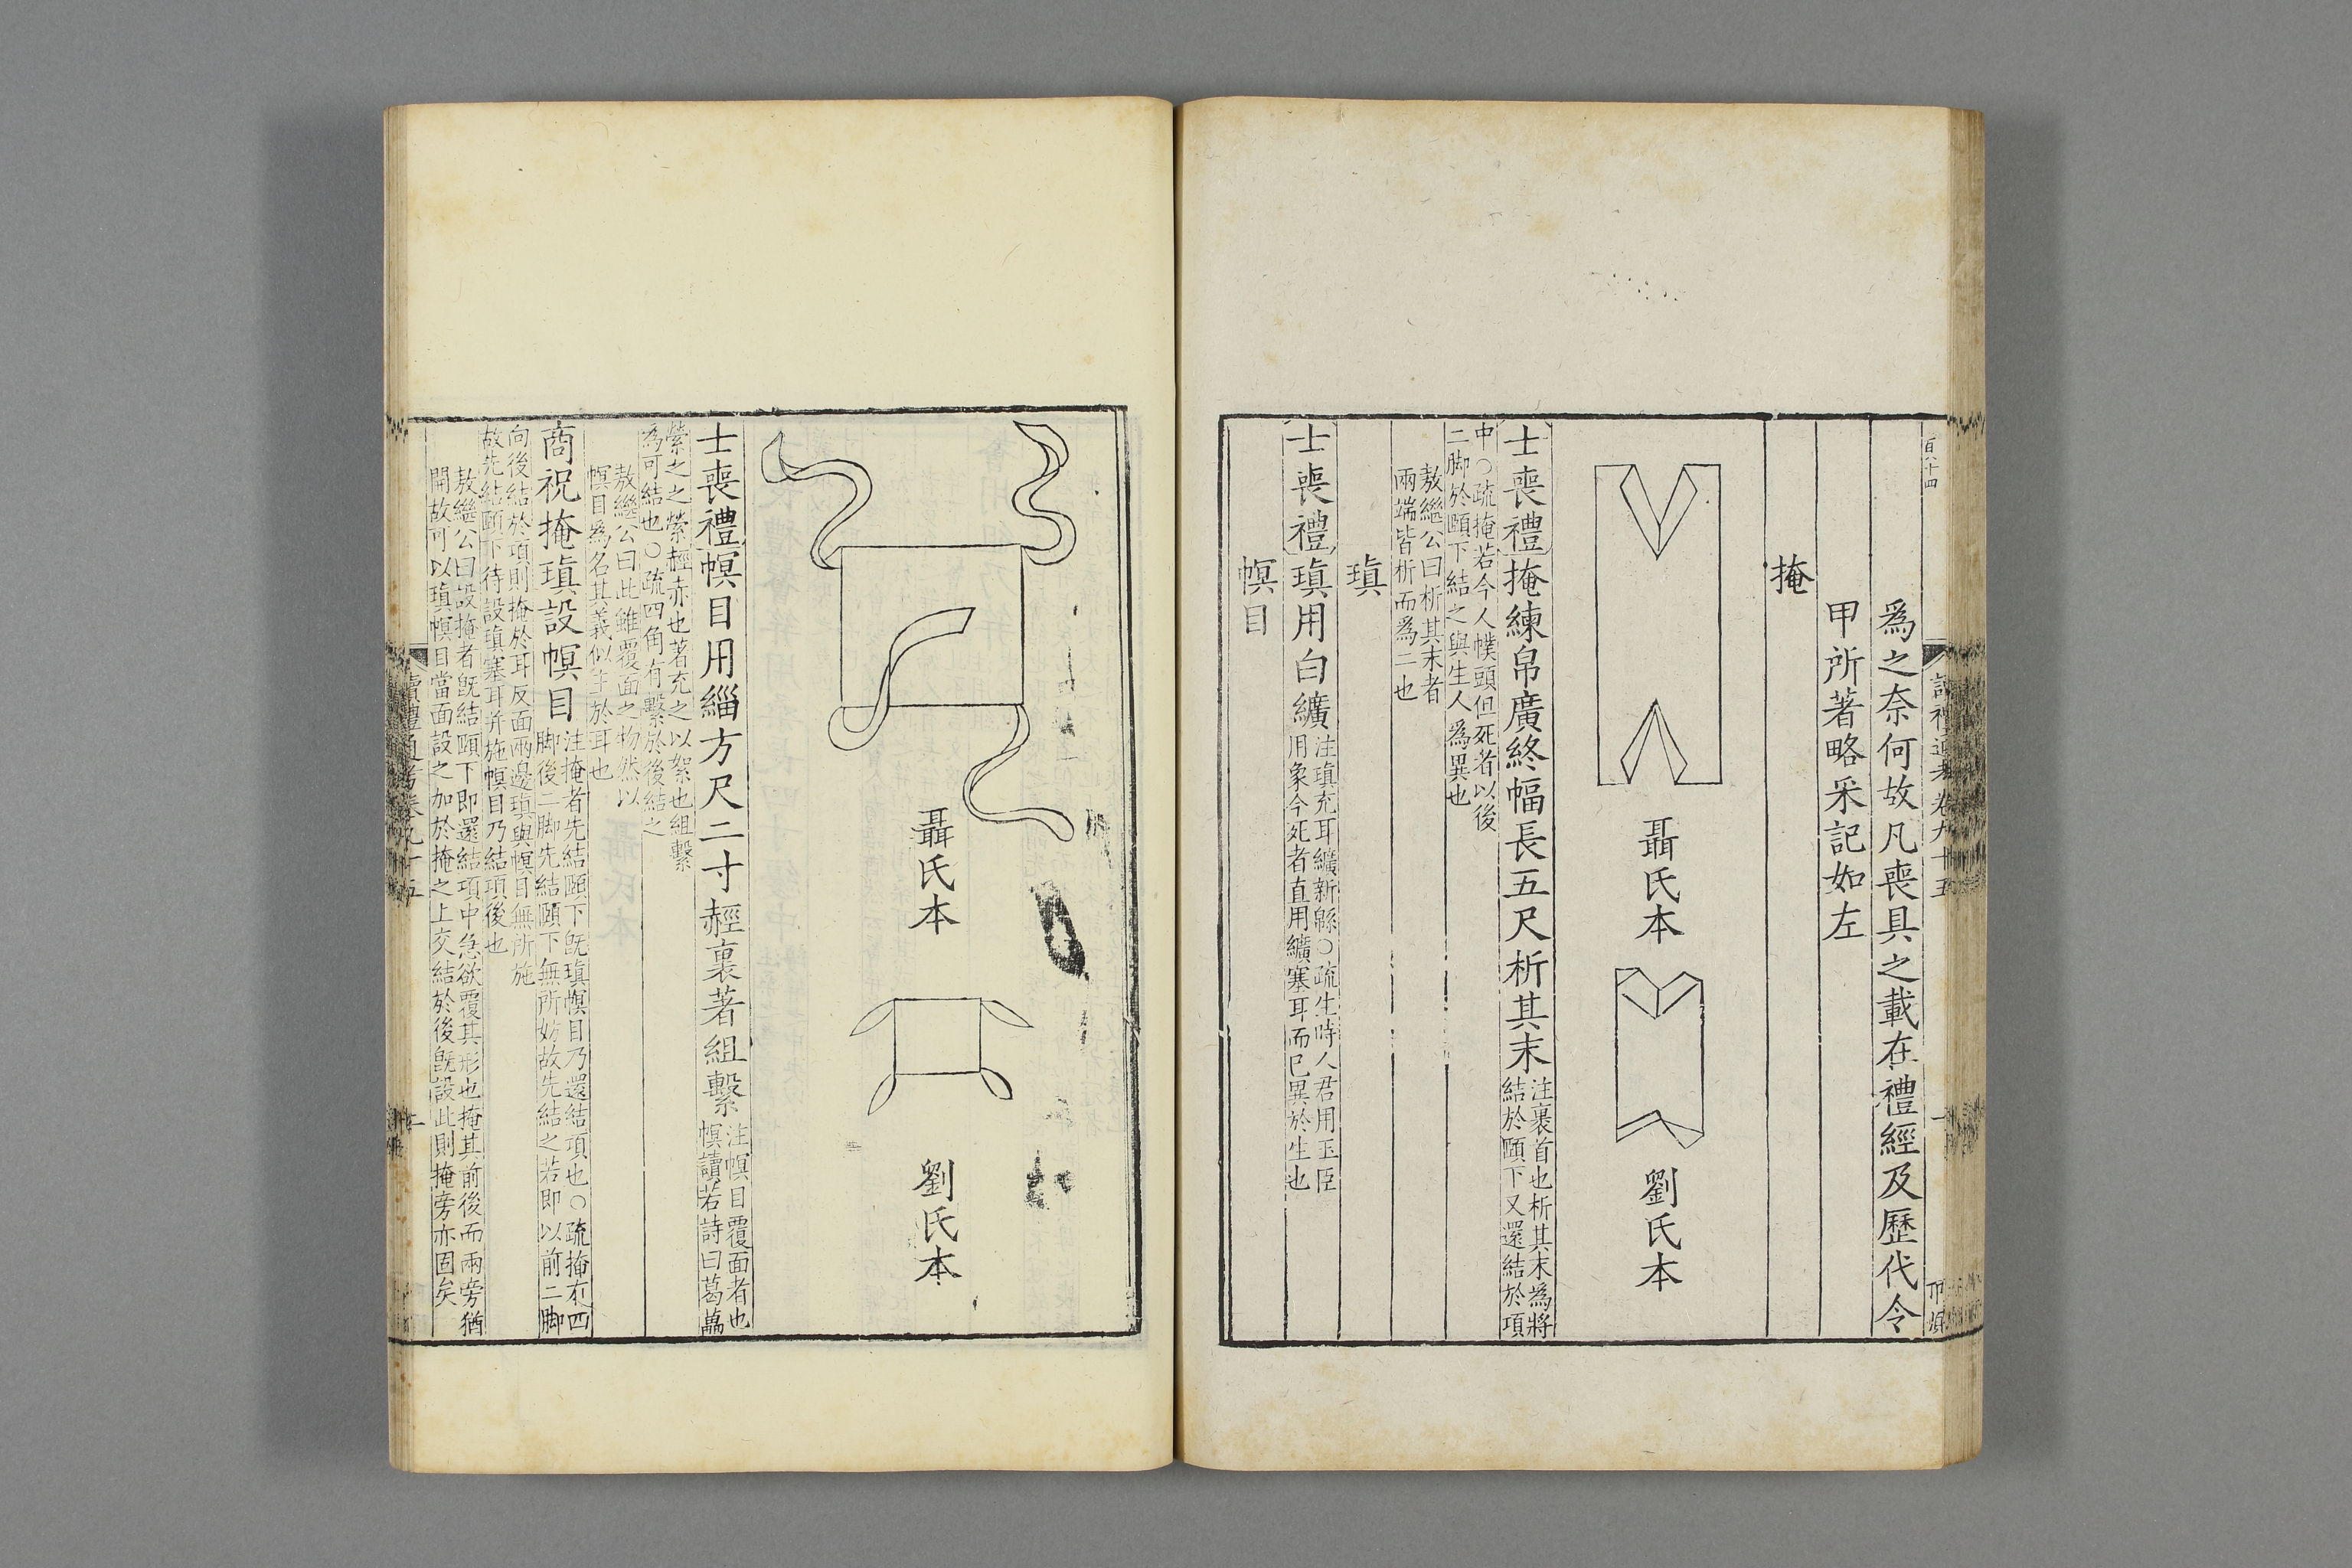 爲之奈何故凡喪具之載在禮經及歷代令
甲所著略采記如左
掩
聶氏本
劉氏本
士喪禮掩練帛廣終幅長五尺析其末
注裹首也析其末爲將
結於頤下又還結於項
中○疏掩若今人幞頭但死者以後
二脚於頤下結之與生人爲異也
敖繼公曰析其末者
兩端皆析而爲二也
瑱
士喪禮瑱用白纊
注瑱充耳纊新緜○疏生時人君用玉臣
用象今死者直用纊塞耳而已異於生也
幎目
聶氏本
劉氏本
士喪禮幎目用緇方尺二寸䞓裏著組繫
注幎目覆面者也
幎讀若詩曰葛藟
縈之之縈䞓赤也著充之以絮也組繫
爲可結也○疏四角有繫於後結之
敖繼公曰此雖覆面之物然以
幎目爲名其義似主於耳也
商祝掩瑱設幎目
注掩者先結頤下旣瑱幎目乃還結項也○疏掩有四
脚後二脚先結頤下無所妨故先結之若即以前二脚
向後結於項則掩於耳反面兩邊瑱與幎目無所施
故先結頤下待設瑱塞耳并施幎目乃結項後也
敖繼公曰設掩者旣結頤下即還結項中急欲覆其形也掩其前後而兩旁猶
開故可以瑱幎目當面設之加於掩之上交結於後旣設此則掩旁亦固矣
讀禮通考卷九十五
二